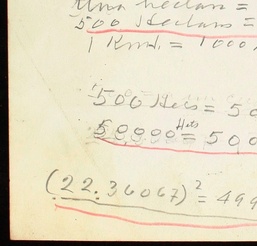 Una hectara =
500 Hectars =
1 Kmt. = 1000
500 Hets = 50
50,000 Hets = 50,0
(22.36067)² = 499